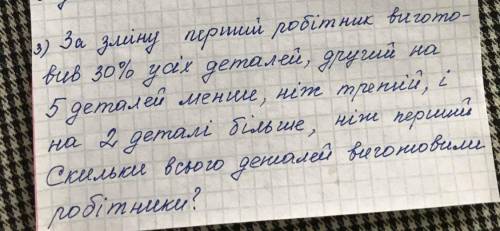 3) За зміну перший робітник вигото-
вив 30% усіх деталей, другий на
5 деталей менше, ніж третій, і
на 2 деталі більше, ніж перший
Скильки всього деталей виготовили
робітники?